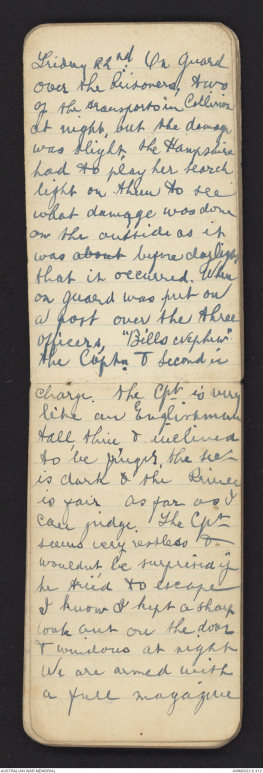 Friday 22nd On Guard
over the Prisoners, two
of the transports in Collision
at night, but the damage
was slight, the Hampshire
had to play her search
light on them to see
what damage was done
on the outside as it
was about before daylight
that it occurred. When
on guard was put on
a post over the three
officers, "Bills nephew"
the Captn & second in
charge. the Cpt is very
like an Englishman
tall thin & inclined
to be ginger, the sec
is dark & the Prince
is fair as far as I
can judge. The Cpt
seems very restless &
wouldnt be surprised if
he tried to escape
I know I kept a sharp
look out on the door
& windows at night
We are armed with
a full magazine
AUSTRALIAN WAR MEMORIAL